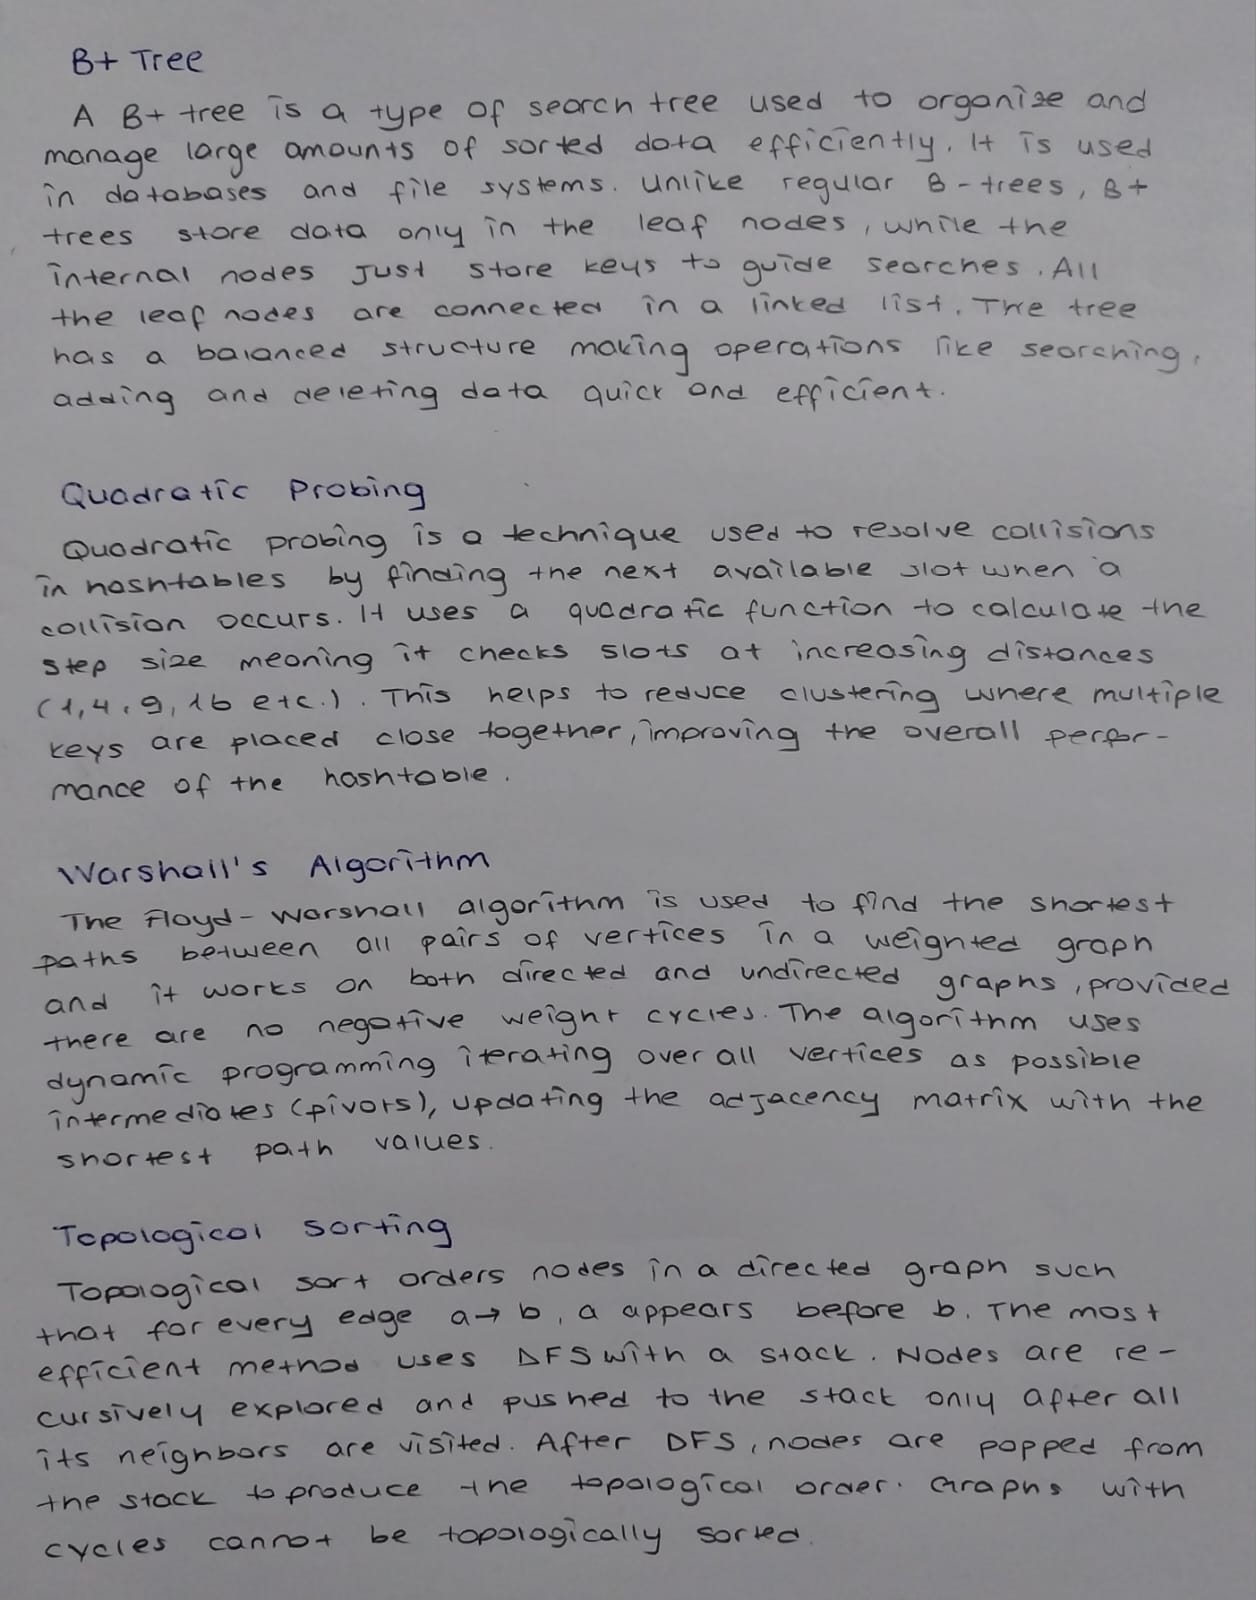 B+ Tree
A B+ tree is a type of search tree used to organize and
manage large amounts of sorted data efficiently. It is used
in databases and file systems. Unlike regular B-trees, B+
trees store data only in the leaf nodes, while the
internal nodes just store keys to guide searches. All
the leaf nodes are connected in a linked list. The tree
has a balanced structure making operations like searching,
adding and deleting data quick and efficient.
Quadratic Probing
Quadratic probing is a technique used to resolve collisions
in hashtables by finding the next available slot when a
collision occurs. It uses a quadratic function to calculate the
step size meaning it checks slots at increasing distances
(1,4,9,16 etc.). This helps to reduce clustering where multiple
keys are placed close together, improving the overall perfor-
mance of the hashtable.
Warshall's Algorithm
The Floyd-Warshall algorithm is used to find the shortest
paths between all pairs of vertices in a weighted graph
and it works on both directed and undirected graphs, provided
there are no negative weight cycles. The algorithm uses
dynamic programming iterating over all vertices as possible
intermediates (pivots), updating the adjacency matrix with the
shortest path values.
Topological Sorting
Topological sort orders nodes in a directed graph such
that for every edge a→b, a appears before b. The most
efficient method uses DFS with a stack. Nodes are re-
cursively explored and pushed to the stack only after all
its neighbors are visited. After DFS, nodes are popped from
the stack to produce the topological order. Graphs with
cycles cannot be topologically sorted.